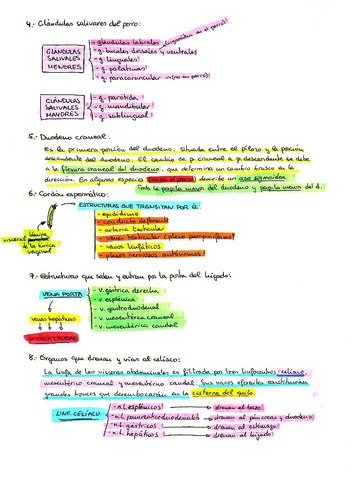 4.- Glándulas salivares del perro:
GLÁNDULAS SALIVALES MENORES
- glándulas labiales (cigomática en el perro)
- g. bucales dorsales y ventrales
- g. linguales
- g. palatinas
- g. paracaruncular → (no en perro)
GLÁNDULAS SALIVALES MAYORES
- g. parótida
- g. mandibular
- g. sublingual
5.- Duodeno craneal:
Es la primera porción del duodeno. Situada entre el píloro y la porción
descendente del duodeno. El cambio de p. craneal a p. descendente se debe
a la flexura craneal del duodeno, que determina un cambio brusco en la
dirección. En algunas especies (no en el perro) describe un asa sigmoidea.
Tras la papila mayor del duodeno y papila menor del d.
6.- Cordón espermático:
ESTRUCTURAS QUE TRANSITAN POR ÉL
- epidídimo
- conducto deferente
- arteria testicular
- vena testicular (plexo pampiniforme)
- vasos linfáticos
- plexos nerviosos autónomos
lámina
visceral de la túnica
vaginal
7.- Estructuras que salen y entran por la porta del hígado:
VENA PORTA
- v. gástrica derecha
- v. esplénica
- v. gastroduodenal
- v. mesentérica craneal
- v. mesentérica caudal
venas hepáticas
V. CAVA CAUDAL
8.- Órganos que drenan y van al celíaco:
La linfa de las vísceras abdominales es filtrada por tres linfocentros: celíaco,
mesentérico craneal y mesentérico caudal. Sus vasos eferentes constituirán
grandes troncos que desembocarán en la cisterna del quilo.
LINF. CELÍACO
- n.l. esplénicos → drenan el bazo
- n.l. pancreáticoduodenales → drenan el páncreas y duodeno
- n.l. gástricos → drenan el estómago
- n.l. hepáticos → drenan el hígado